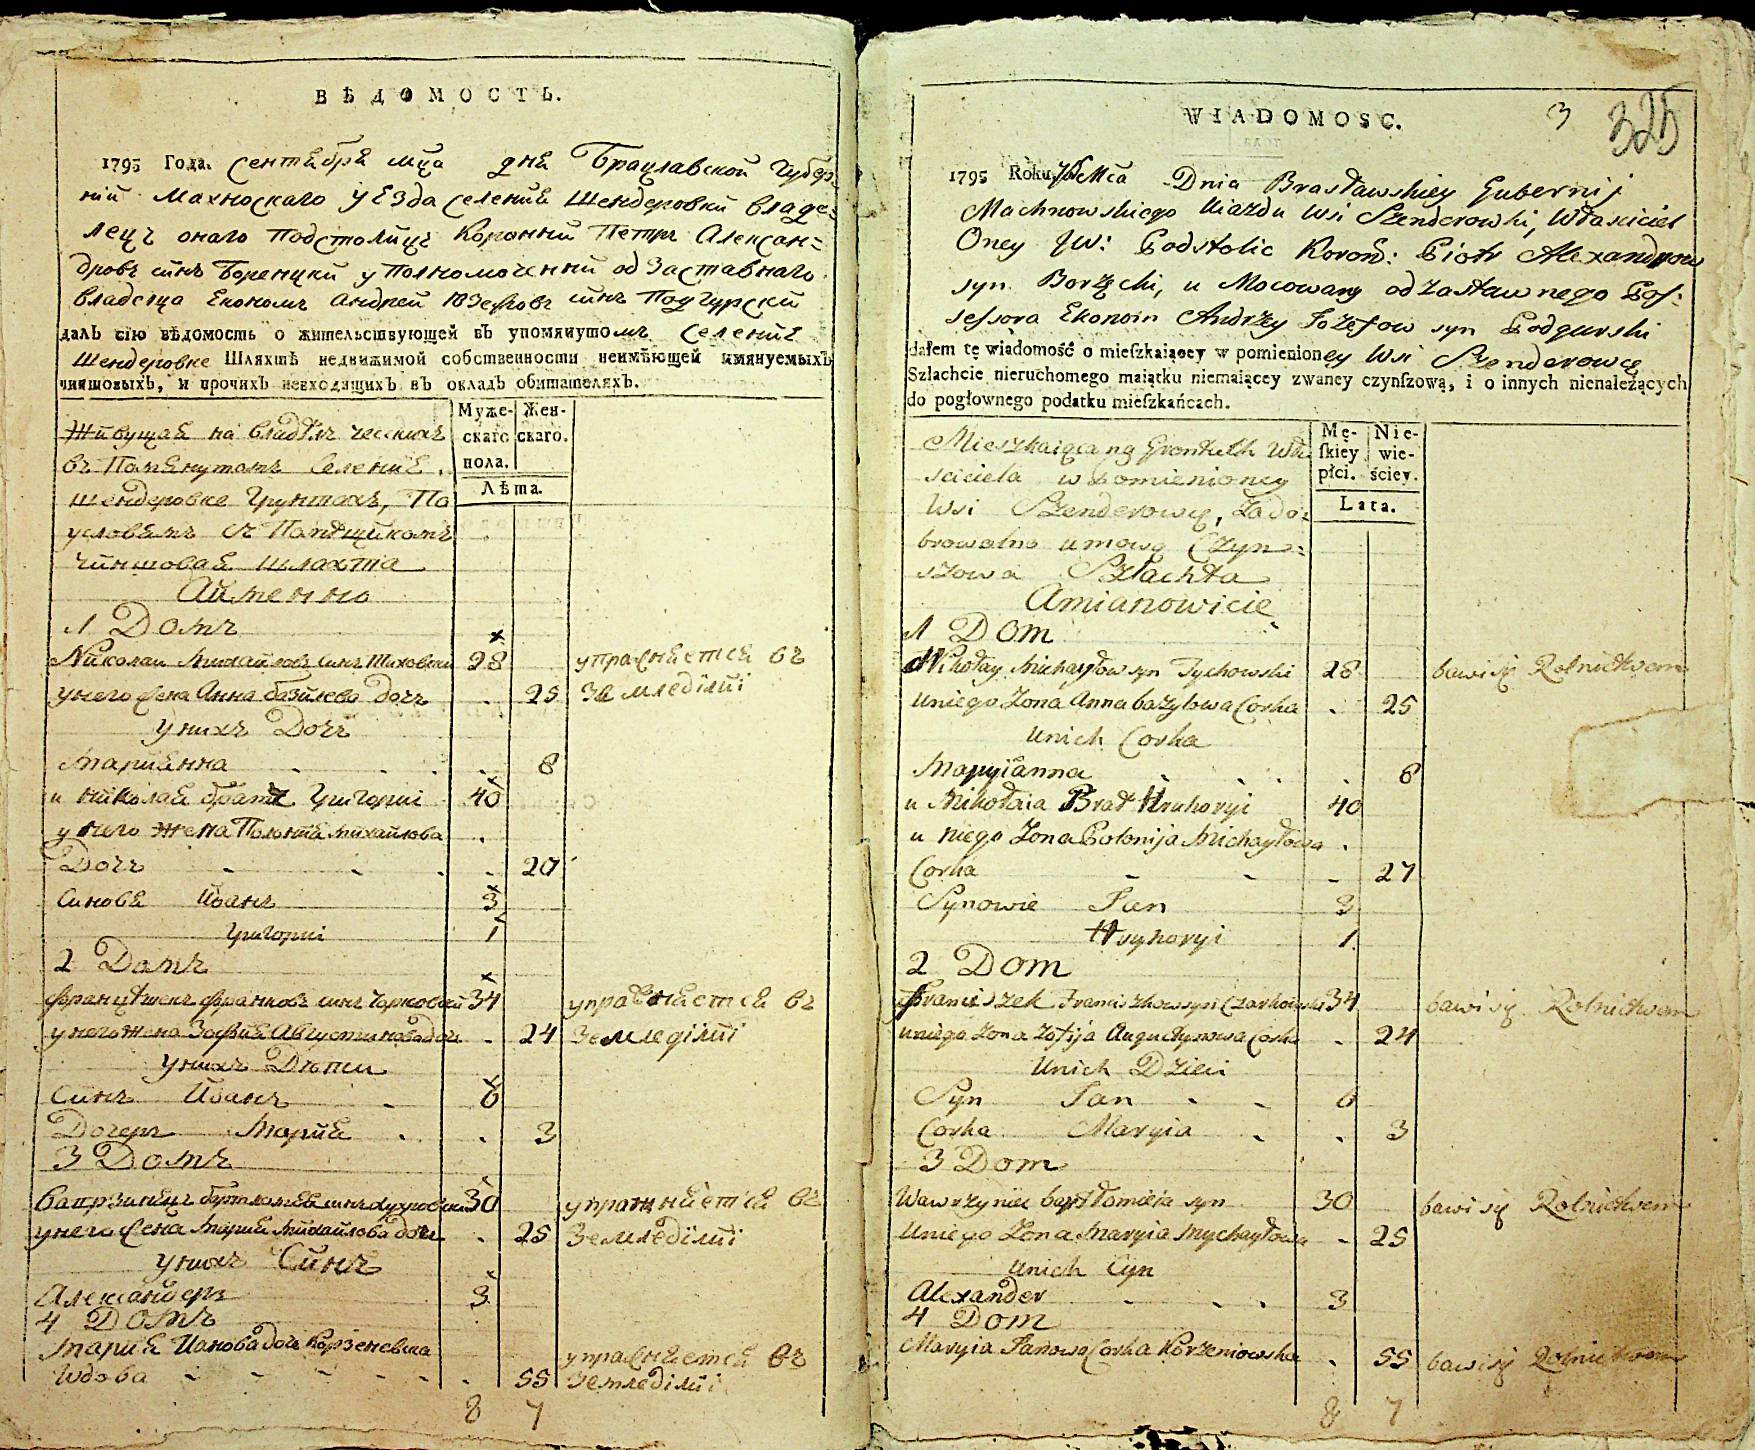 ВѢДОМОСТЬ.
1795 Года. Сентебре мца дня Брацлавской Губер-
ний Махноскаго уезда селения Шендеровки владе=
лецъ онаго Подстолицъ Коронни Петръ Алексан=
дровъ синъ Боренцки уполномоченни од Заставнаго
владелца Економъ Андрей Юзефовъ синъ Подгурски
далъ сію вѣдомость о жительствующей въ упомянутомъ селение
Шендеровке Шляхтѣ недвижимой собственности неимѣющей имянуемыхъ
чиншовыхъ, и прочихъ невходящихъ въ окладъ обитателяхъ.
Муже- Жен-
скаго скаго.
пола.
Лѣта.
Живущая на
въ Помянутомъ Селение
Шендеровке Грунтахъ, По
условамъ съ Помещикомъ
чиншовая шляхта
Аименно
1 Домъ
Николаи Михайловъ синъ Тиховски 28 упражняется въ
у него жена Анна базилева дочъ 25 Земледілиі
у нихъ Дочъ
Марианна 8
и Николая братъ Григориі 40
у него жена Полония михайлова
Дочъ 20
Синове Иванъ 3
Григориі 1
2 Домъ
Францишекъ Франковъ синъ Чарковски 34 упражняется въ
у него жена Зофия Августинова дочъ 24 Земледілиі
у нихъ Дѣти
Синъ Иванъ 6
Дочеръ Мария 3
3 Домъ
30 упражняется въ
у него жена Мария Михайлова дочъ 25 Земледілиі
у нихъ Синъ
Александеръ 3
4 Домъ
Мария Иanова дочъ Корженевска упражняется въ
Вдова 55 Земледілиі
8 7
WIADOMOSC.
3 325
1795 Roku Mca Dnia Brasławskiey Gubernij
Machnowskiego Uiazdu Wsi Szenderowki, Właściciel
Oney JW: Podstolic Koron: Piotr Alexandrow
syn Borzęcki, u Mocowany od zastawnego Pos:
sessora Ekonom Andrzey Jozefow syn Podgurski
dałem tę wiadomość o mieſzkaiącey w pomienioney Wsi Szenderowce
Szlachcie nieruchomego maiątku niemaiącey zwaney czynſzową, i o innych nienależących
do pogłownego podatku mieſzkańcach.
Mę- Nie-
ſkiey wie-
płci. ściey.
Lata.
Mieszkaiąca na Gruntach Wła
sciciela w Pomienioney
Wsi Szenderowce, za do:
browolno umową Czyn=
szowa Szlachta
Amianowicie
1 Dom
Mikołay Michayłow syn Tychowski 28 bawi się Rolnictwem
u niego Zona Anna bazylowa Corka 25
u nich Corka
Maryianna 8
u Mikołaia Brat Hrehoryi 40
u niego Zona Polonija Michayłowa
Corka 27
Synowie Jan 3
Hryhoryi 1
2 Dom
Franciszek Franciszkow syn Czarkowski 34 bawi się Rolnictwem
u niego Zona Zofija Augustynowa Corka 24
U nich Dzieci
Syn Jan 6
Corka Maryia 3
3 Dom
Wawrzyniec bartłomieia syn 30 bawi się Rolnictwem
U niego Zona Maryia Mychayłowa 25
u nich Cyn
Alexander 3
4 Dom
Maryia Janowa Corka Korzeniowska 55 bawi się Rolnictwem
8 7